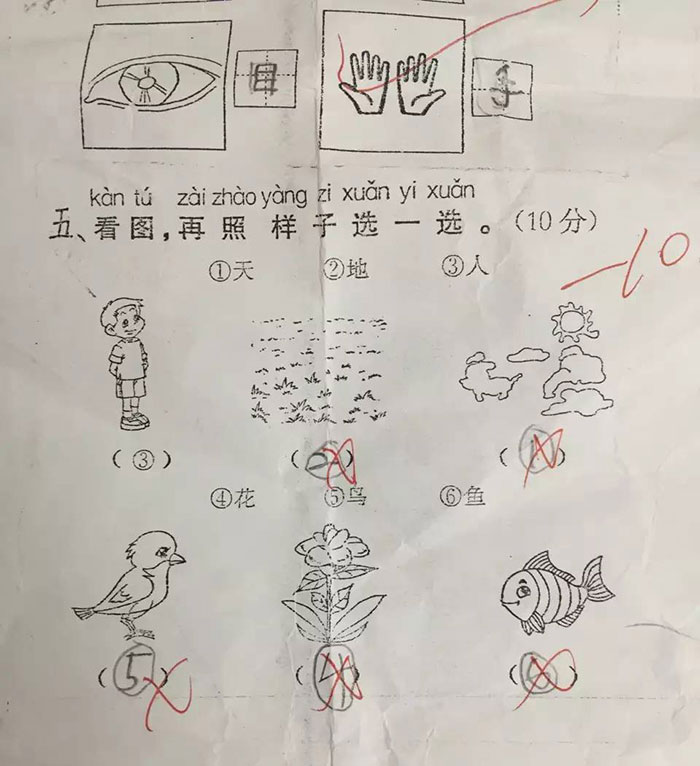 目 手
kàn tú zài zhào yàng zi xuǎn yi xuǎn
五、看图,再照样子选一选。(10分)
①天 ②地 ③人
-10
(③) (②) (①)
④花 ⑤鸟 ⑥鱼
(⑤) (④) (⑥)